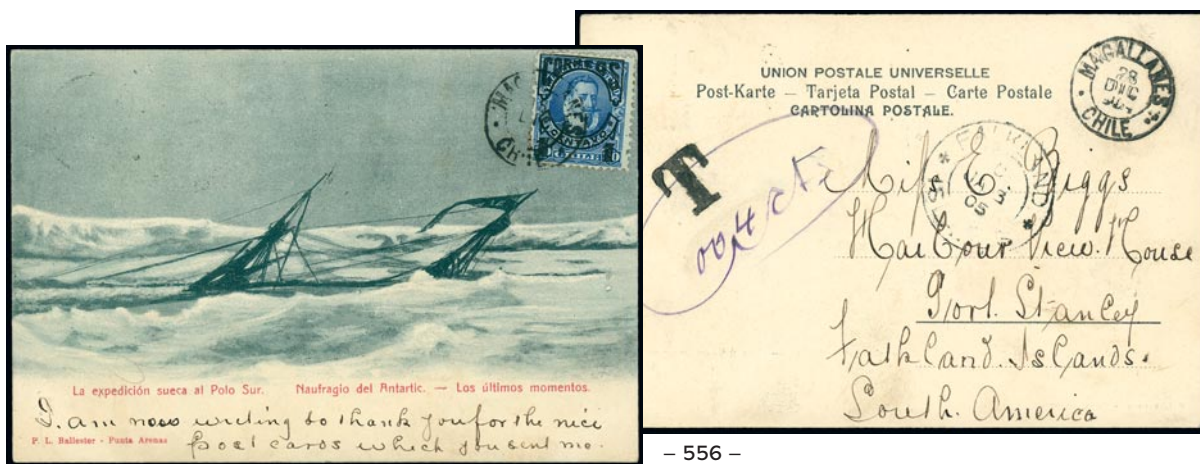 La expedición sueca al Polo Sur. Naufragio del Antartic. — Los últimos momentos.
I am now writing to thank you for the nice
F. L. Ballester - Punta Arenas
post cards which you sent me.
CORREOS
CENTAVO
UNION POSTALE UNIVERSELLE
Post-Karte – Tarjeta Postal – Carte Postale
CARTOLINA POSTALE.
MAGALLANES
28
DIC
CHILE
FALKLAND
05
T
004 cts
Miss E. Biggs
Harbour View House
Port Stanley
Falkland Islands.
South America
– 556 –